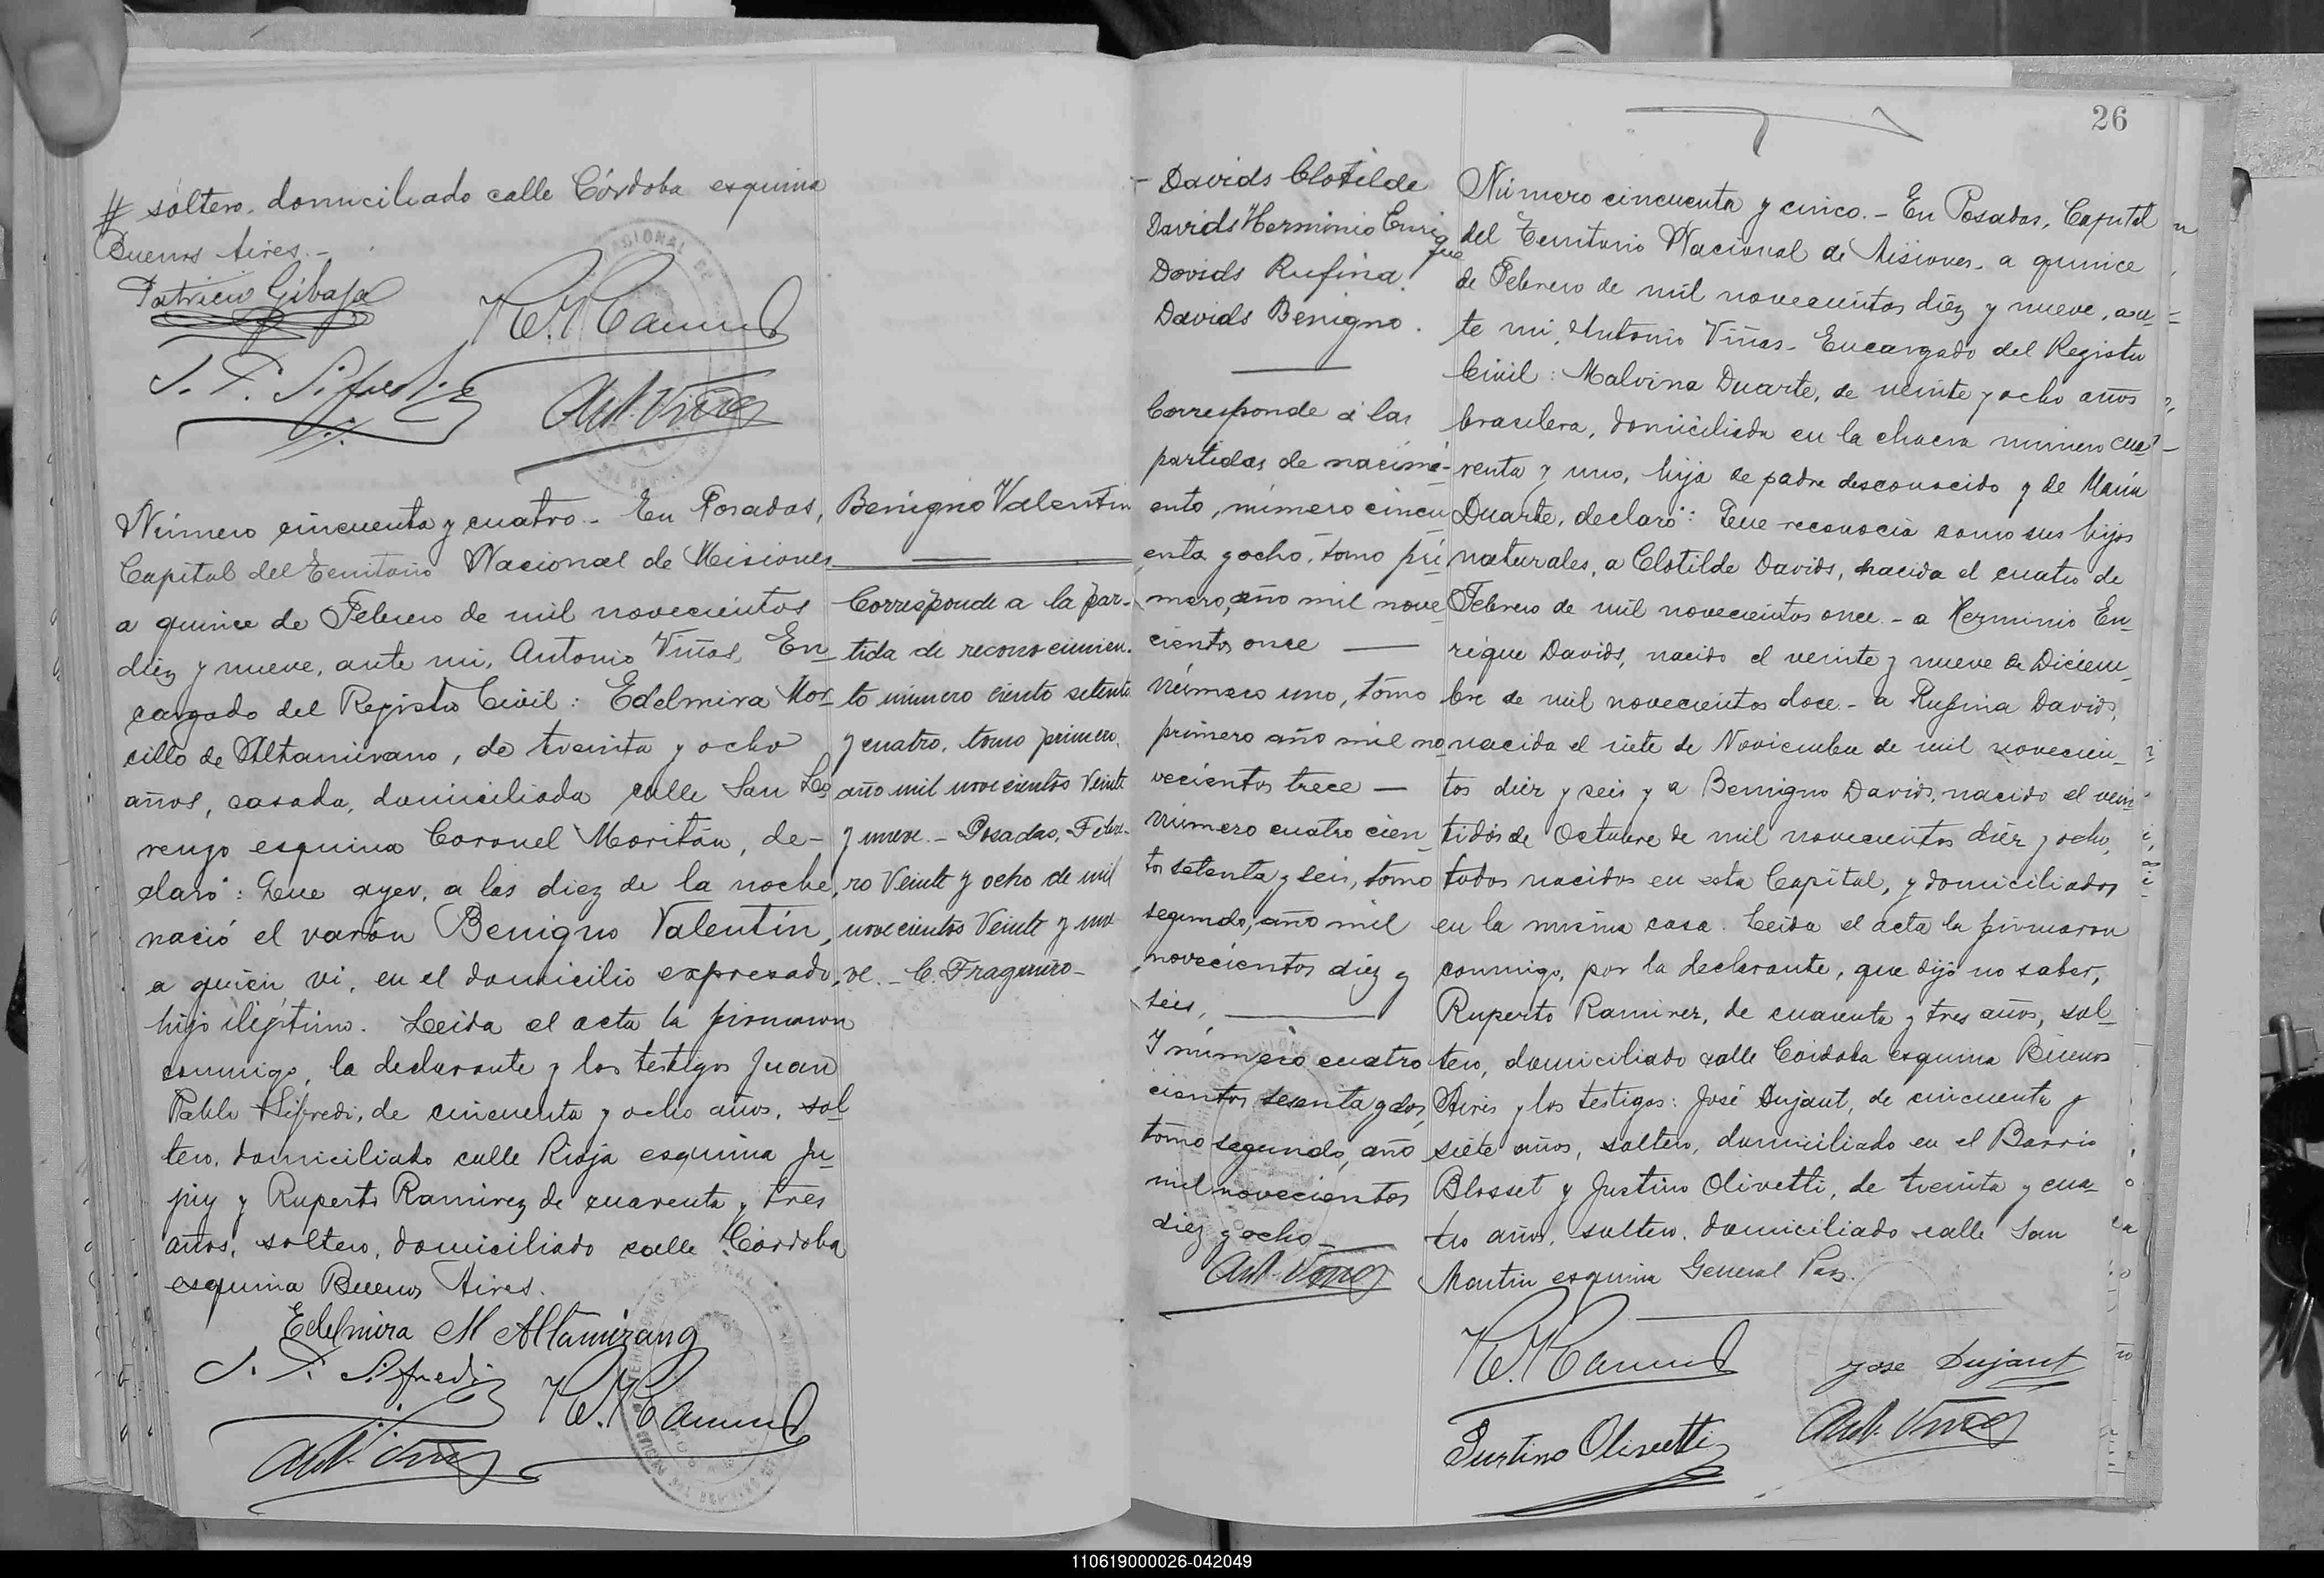 # soltero, domiciliado calle Córdoba esquina
Buenos Aires.-
Patricio Gibaja
Ant. Viñas
Número cincuenta y cuatro.- En Posadas,
Capital del Territorio Nacional de Misiones
a quince de Febrero de mil novecientos
diez y nueve, ante mi, Antonio Viñas, En-
cargado del Registro Civil: Edelmira Mor-
cillo de Altamirano, de treinta y ocho
años, casada, domiciliada calle San Lo-
renzo esquina Coronel Moritán, de-
claró: Que ayer, a las diez de la noche,
nació el varón Benigno Valentín,
a quien vi, en el domicilio expresado,
hijo ilegítimo. Leida el acta la firmaron
conmigo, la declarante y los testigos Juan
Pablo Sifredi, de cincuenta y ocho años, sol-
tero, domiciliado calle Rioja esquina Ju-
juy y Ruperto Ramirez de cuarenta y tres
años, soltero, domiciliado calle Córdoba
esquina Buenos Aires.
Edelmira M Altamirano
J. P. Sifredi
Ant. Viñas
Benigno Valentín
Corresponde a la par-
tida de reconocimien-
to número ciento setenta
y cuatro, tomo primero,
año mil novecientos Veinte
y nueve.- Posadas, Febre-
ro Veinte y ocho de mil
novecientos Veinte y nue-
ve.- C. Fragueiro-
26
- Davids Clotilde
Davids Herminio Enrique
Davids Rufina.
Davids Benigno.
Corresponde á las
partidas de nacimi-
ento, número cincu
enta y ocho, tomo pri
mero, año mil nove
cientos once
Número uno, tomo
primero año mil no
vecientos trece
Número cuatro cien
tos setenta y seis, tomo
segundo, año mil
novecientos diez y
seis,
Y número cuatro
cientos sesenta y dos,
tomo segundo, año
mil novecientos
diez y ocho
Ant. Viñas
Número cincuenta y cinco.- En Posadas, Capital
del Territorio Nacional de Misiones, a quince
de Febrero de mil novecientos diez y nueve, an-
te mi, Antonio Viñas- Encargado del Registro
Civil: Malvina Duarte, de veinte y ocho años
brasilera, domiciliada en la chacra número cua-
renta y uno, hija de padre desconocido y de María
Duarte, declaró: Que reconocía como sus hijos
naturales, a Clotilde Davids, nacida el cuatro de
Febrero de mil novecientos once.- a Herminio En-
rique Davids, nacido el veinte y nueve de Diciem-
bre de mil novecientos doce.- a Rufina Davids,
nacida el siete de Noviembre de mil novecien-
tos diez y seis y a Benigno Davids, nacido el vein
tidós de Octubre de mil novecientos diez y ocho,
todos nacidos en esta Capital, y domiciliados
en la misma casa. Leida el acta la firmaron
conmigo, por la declarante, que dijo no saber,
Ruperto Ramirez, de cuarenta y tres años, sol-
tero, domiciliado calle Córdoba esquina Buenos
Aires y los testigos: José Dujaut, de cincuenta y
siete años, soltero, domiciliado en el Barrio
Blosset y Justino Olivetti, de treinta y cua-
tro años, soltero, domiciliado calle San
Martin esquina General Paz.
Jose Dujaut
Justino Olivetti
Ant. Viñas
110619000026-042049